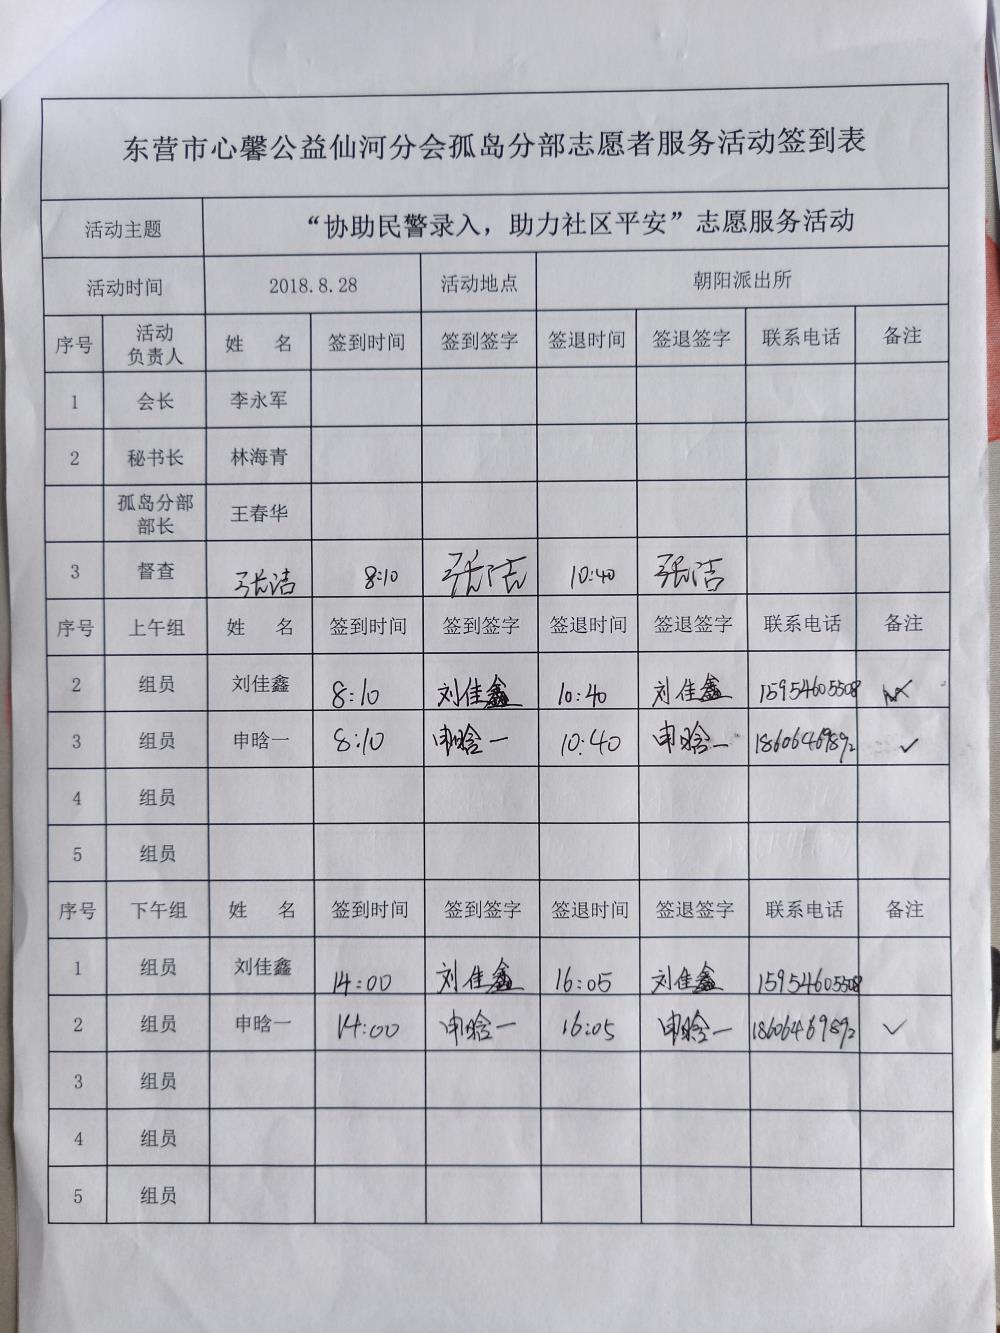 东营市心馨公益仙河分会孤岛分部志愿者服务活动签到表
活动主题 “协助民警录入，助力社区平安”志愿服务活动
活动时间 2018.8.28 活动地点 朝阳派出所
序号 活动负责人 姓 名 签到时间 签到签字 签退时间 签退签字 联系电话 备注
1 会长 李永军
2 秘书长 林海青
孤岛分部部长 王春华
3 督查 张洁 8:10 张洁 10:40 张洁
序号 上午组 姓 名 签到时间 签到签字 签退时间 签退签字 联系电话 备注
2 组员 刘佳鑫 8:10 刘佳鑫 10:40 刘佳鑫 15954605508
3 组员 申晗一 8:10 申晗一 10:40 申晗一 18606469892 ✓
4 组员
5 组员
序号 下午组 姓 名 签到时间 签到签字 签退时间 签退签字 联系电话 备注
1 组员 刘佳鑫 14:00 刘佳鑫 16:05 刘佳鑫 15954605508
2 组员 申晗一 14:00 申晗一 16:05 申晗一 18606469892 ✓
3 组员
4 组员
5 组员